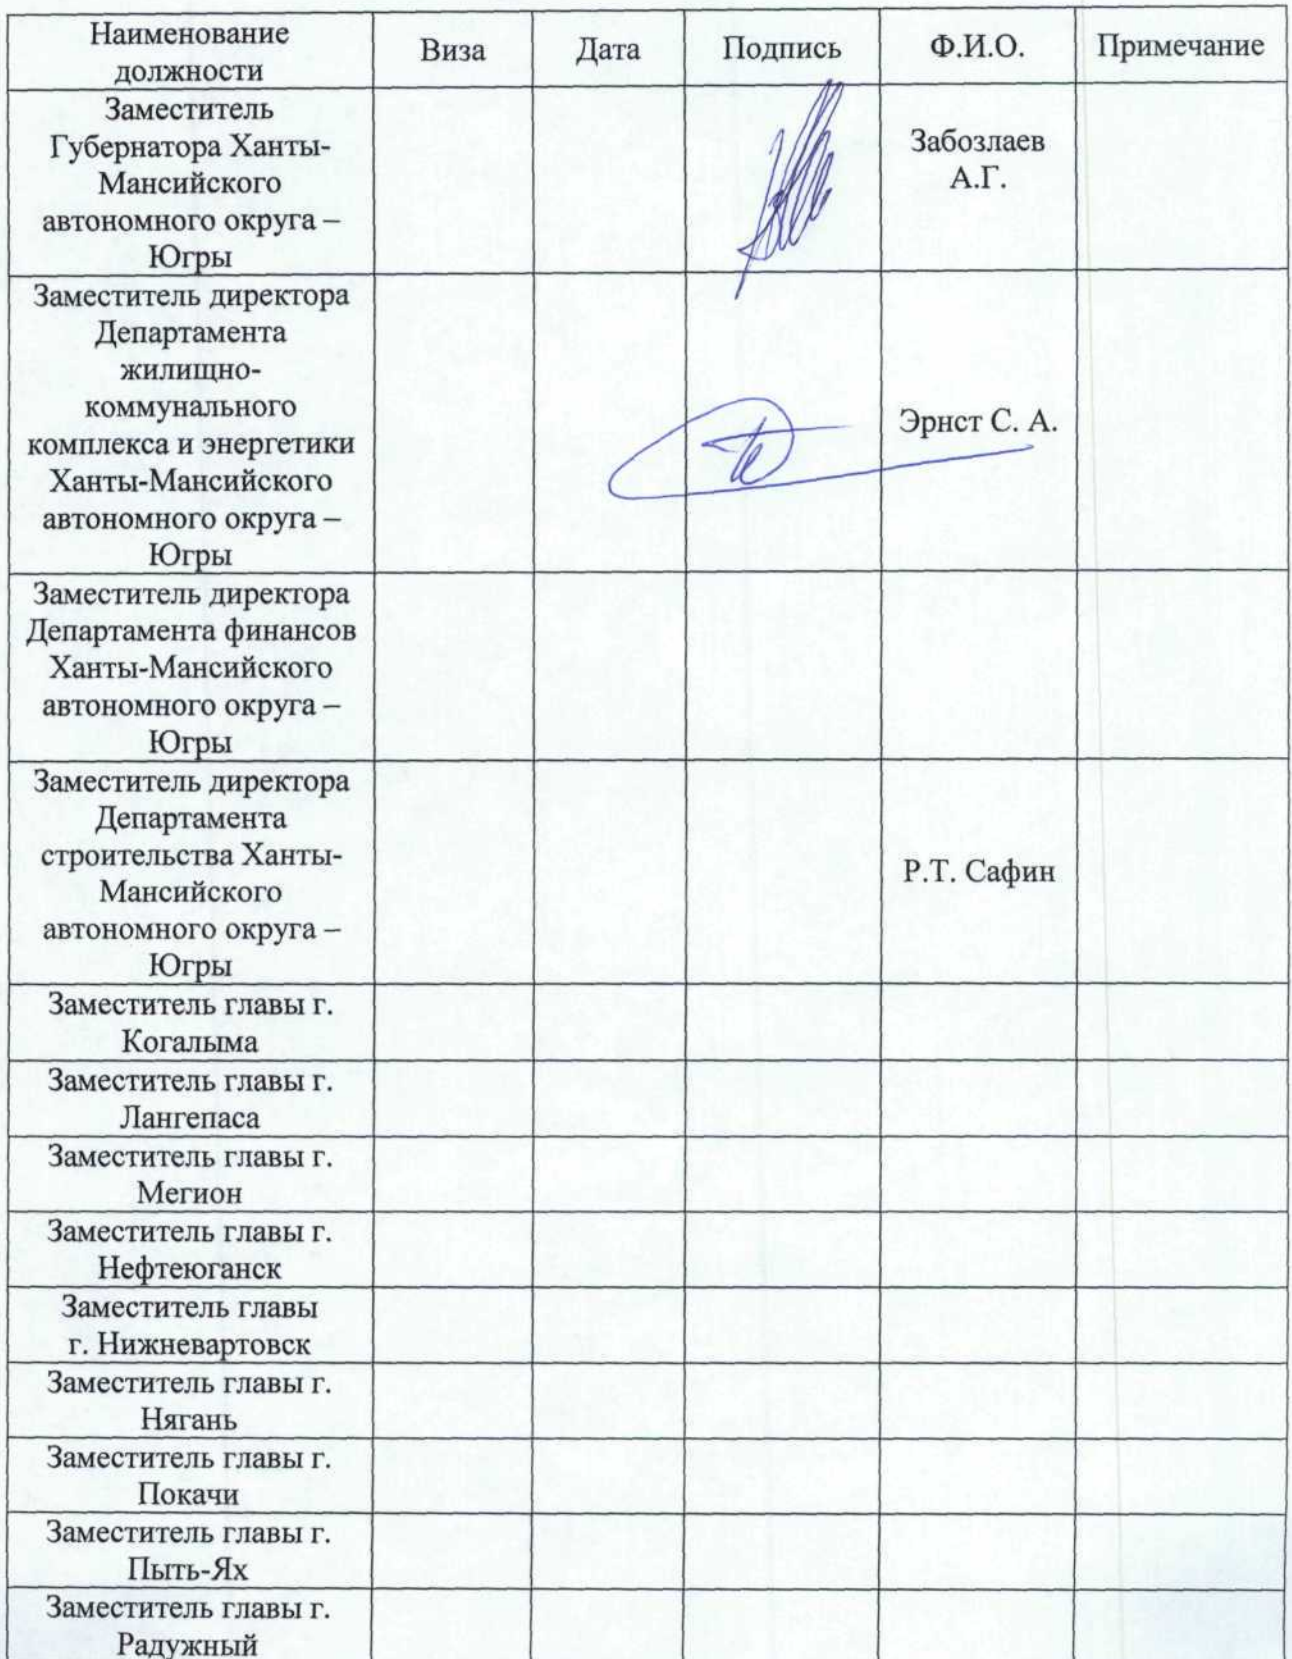 Наименование
должности
Виза
Дата
Подпись
Ф.И.О.
Примечание
Заместитель
Губернатора Ханты-
Мансийского
автономного округа –
Югры
Забозлаев
А.Г.
Заместитель директора
Департамента
жилищно-
коммунального
комплекса и энергетики
Ханты-Мансийского
автономного округа –
Югры
Эрнст С. А.
Заместитель директора
Департамента финансов
Ханты-Мансийского
автономного округа –
Югры
Заместитель директора
Департамента
строительства Ханты-
Мансийского
автономного округа –
Югры
Р.Т. Сафин
Заместитель главы г.
Когалыма
Заместитель главы г.
Лангепаса
Заместитель главы г.
Мегион
Заместитель главы г.
Нефтеюганск
Заместитель главы
г. Нижневартовск
Заместитель главы г.
Нягань
Заместитель главы г.
Покачи
Заместитель главы г.
Пыть-Ях
Заместитель главы г.
Радужный